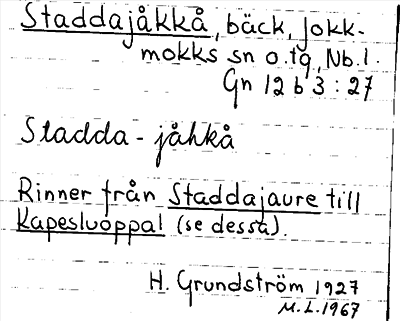 Staddajåkkå, bäck, Jokk-
mokks sn o. tg, Nb. l.
Gn 12 b 3 : 27
Stadda - jåhkå
Rinner från Staddajaure till
Kapesluoppal (se dessa).
H. Grundström 1927
M.L. 1967